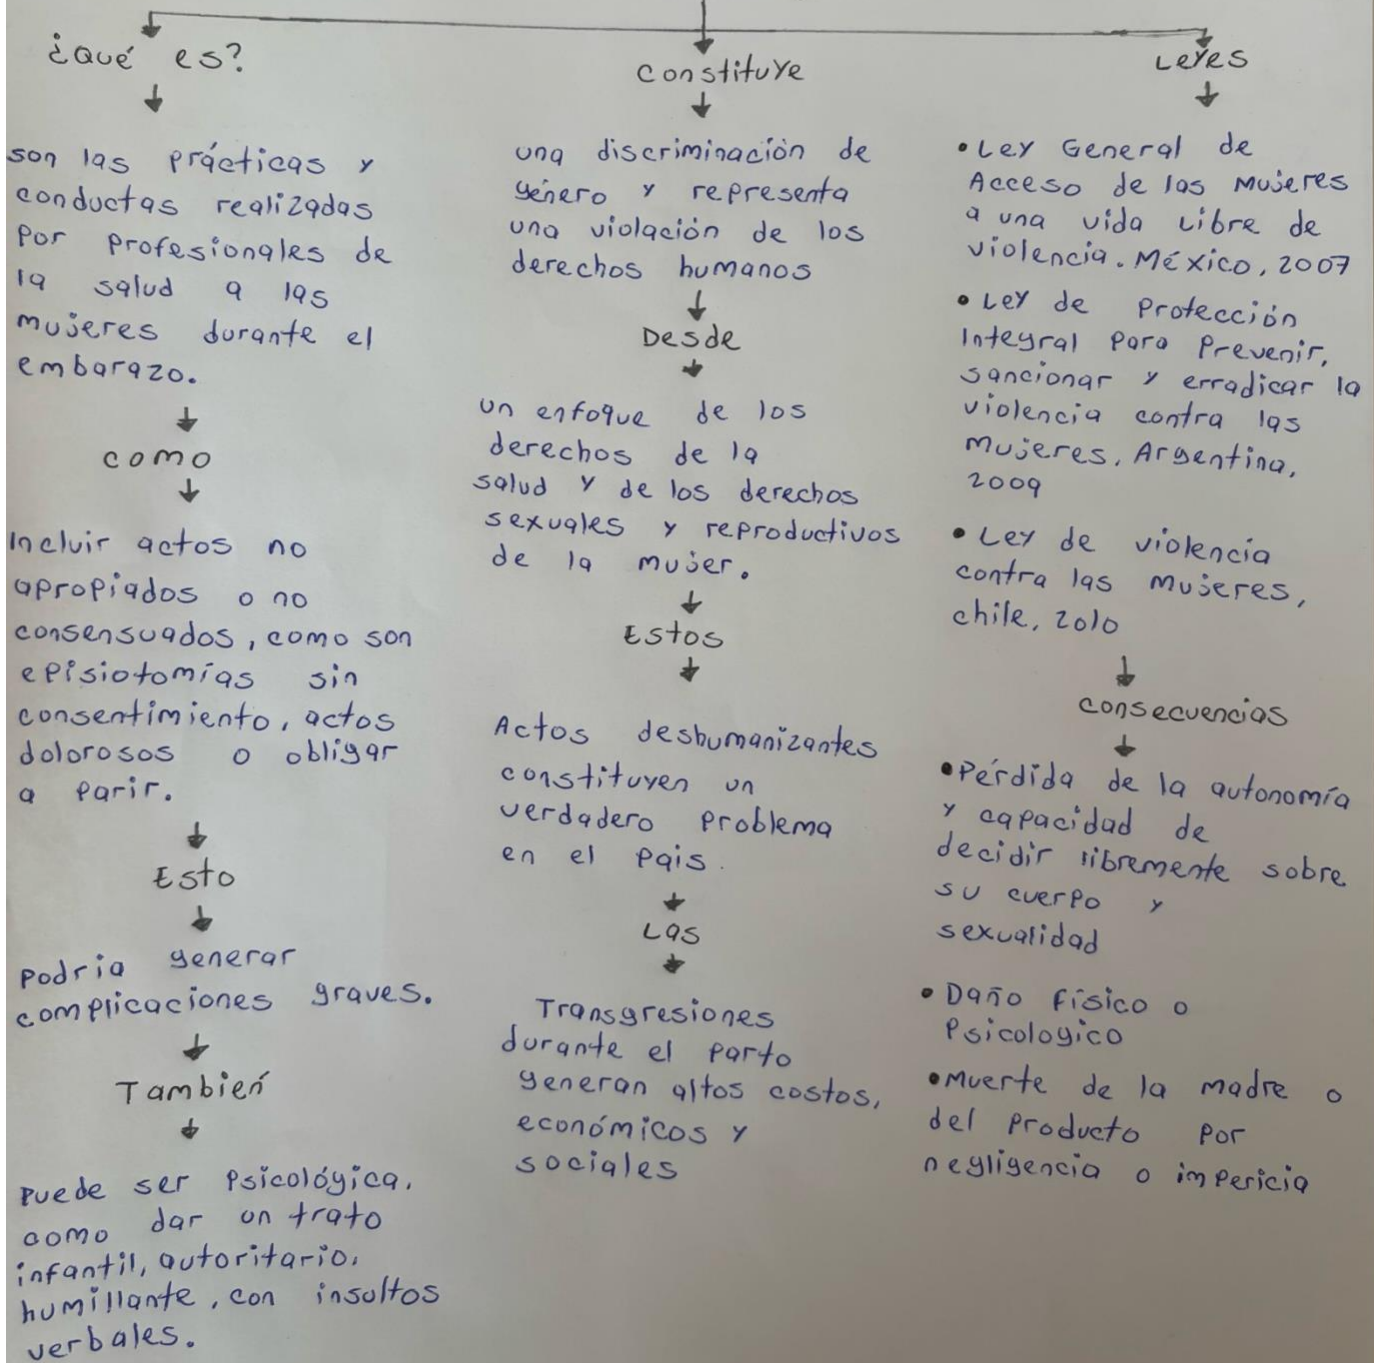 ¿Qué es?
son las prácticas y
conductas realizadas
por profesionales de
la salud a las
mujeres durante el
embarazo.
como
Incluir actos no
apropiados o no
consensuados, como son
episiotomías sin
consentimiento, actos
dolorosos o obligar
a parir.
Esto
podría generar
complicaciones graves.
También
puede ser psicológica,
como dar un trato
infantil, autoritario,
humillante, con insultos
verbales.
constituye
una discriminación de
género y representa
una violación de los
derechos humanos
Desde
un enfoque de los
derechos de la
salud y de los derechos
sexuales y reproductivos
de la mujer.
Estos
Actos deshumanizantes
constituyen un
verdadero problema
en el pais.
Las
Transgresiones
durante el parto
generan altos costos,
económicos y
sociales
Leyes
• Ley General de
Acceso de las Mujeres
a una vida Libre de
violencia. México, 2007
• Ley de Protección
Integral para Prevenir,
sancionar y erradicar la
violencia contra las
Mujeres, Argentina,
2009
• Ley de violencia
contra las Mujeres,
chile, 2010
consecuencias
• Pérdida de la autonomía
y capacidad de
decidir libremente sobre
su cuerpo y
sexualidad
• Daño físico o
Psicologico
• Muerte de la madre o
del Producto por
negligencia o impericia